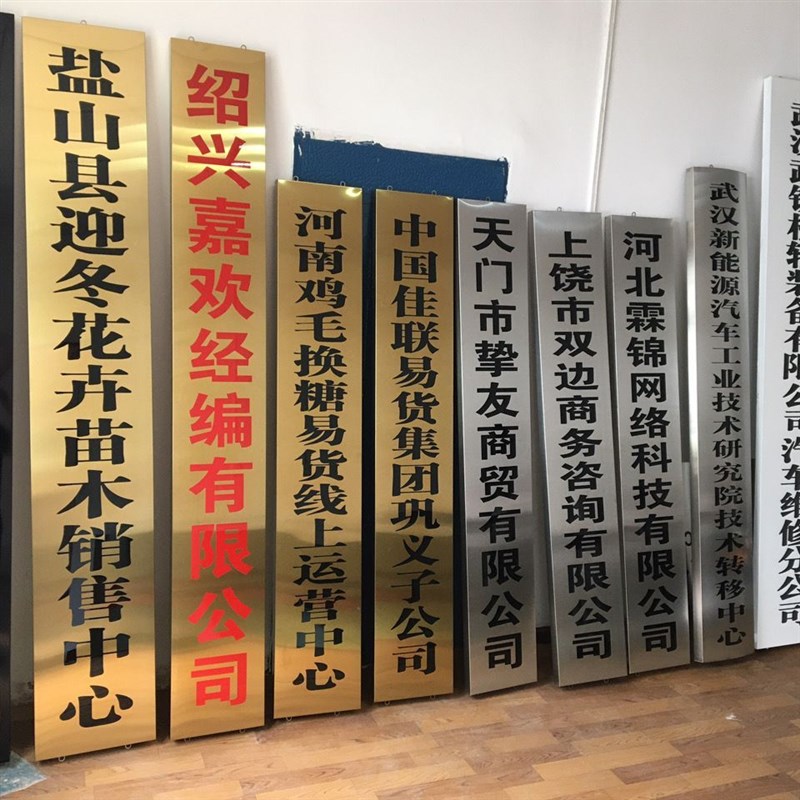 盐山县迎冬花卉苗木销售中心
绍兴嘉欢经编有限公司
河南鸡毛换糖易货线上运营中心
中国佳联易货集团巩义子公司
天门市挚友商贸有限公司
上饶市双边商务咨询有限公司
河北霖锦网络科技有限公司
武汉新能源汽车工业技术研究院技术转移中心
武汉武钢机轧装备有限公司汽车维修分公司